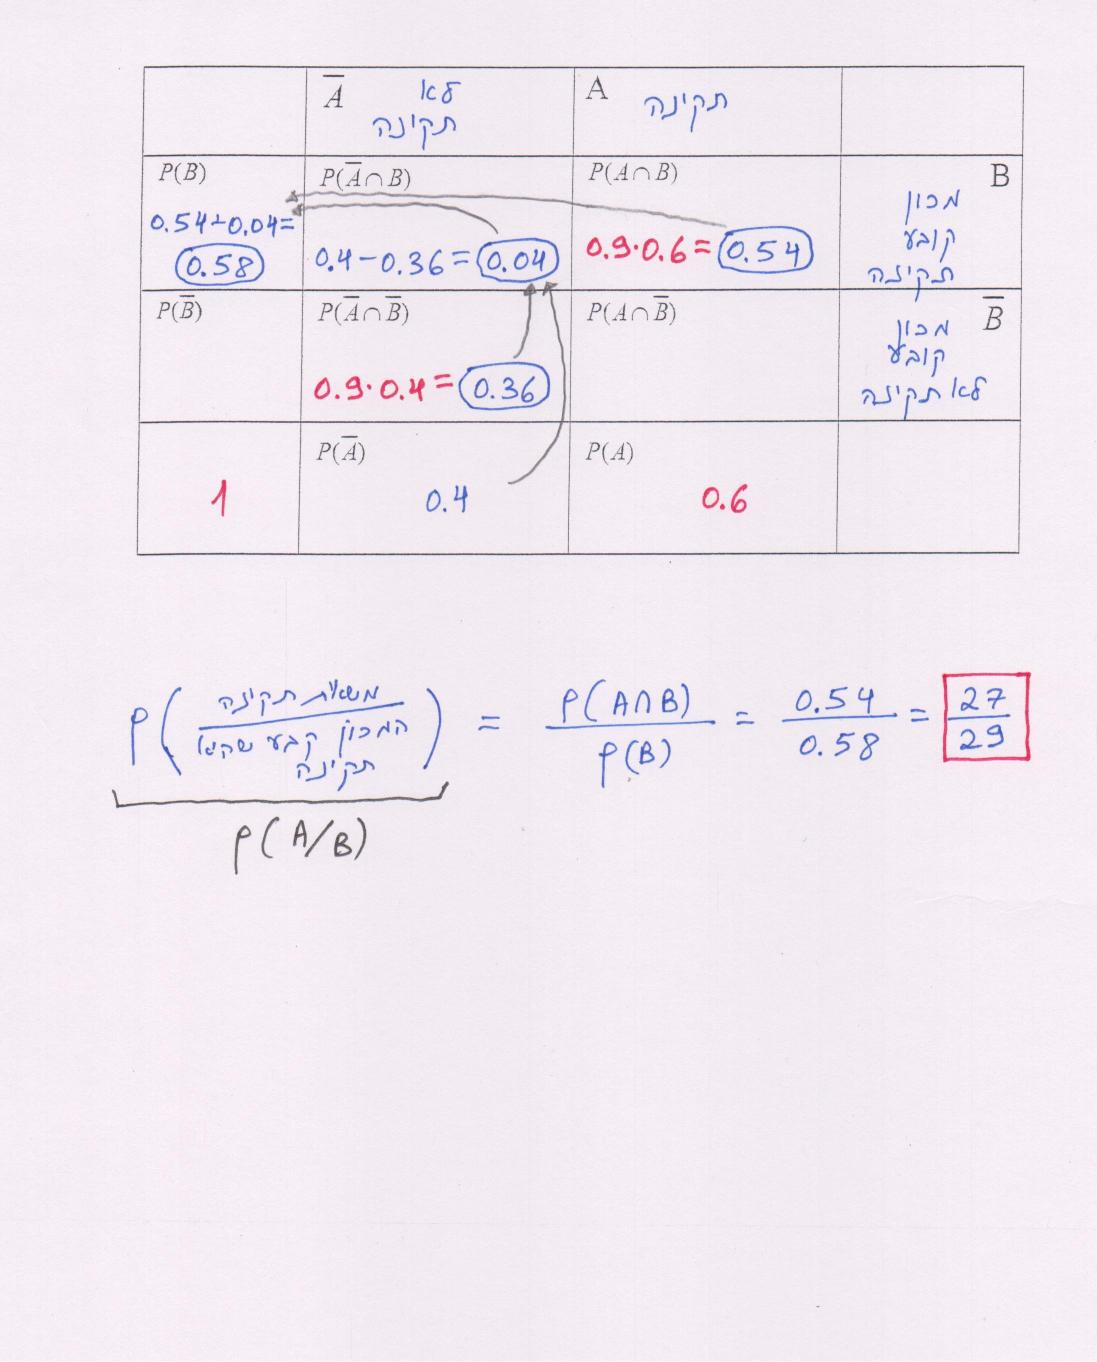 A̅ לא תקינה
A תקינה
P(B)
0.54+0.04=
0.58
P(A̅∩B)
0.4-0.36=0.04
P(A∩B)
0.9·0.6=0.54
B
מכון
קובע
תקינה
P(B̅)
P(A̅∩B̅)
0.9·0.4=0.36
P(A∩B̅)
B̅
מכון
קובע
לא תקינה
1
P(A̅)
0.4
P(A)
0.6
P(משאית תקינה / המכון קבע שהיא תקינה) = P(A∩B)/P(B) = 0.54/0.58 = 27/29
P(A/B)